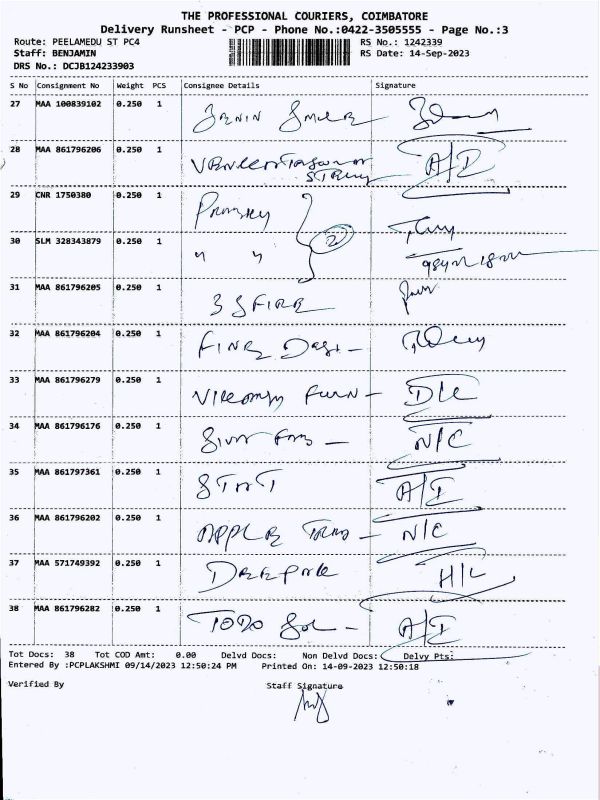 THE PROFESSIONAL COURIERS, COIMBATORE
Delivery Runsheet - PCP - Phone No.:0422-3505555 - Page No.:3
Route: PEELAMEDU ST PC4 RS No.: 1242339
Staff: BENJAMIN RS Date: 14-Sep-2023
DRS No.: DCJB124233903
S No Consignment No Weight PCS Consignee Details Signature
27 MAA 100839102 0.250 1
28 MAA 861796206 0.250 1 A/I
29 CNR 1750380 0.250 1
30 SLM 328343879 0.250 1 " " 2
31 MAA 861796205 0.250 1 FIRE
32 MAA 861796204 0.250 1 FINE
33 MAA 861796279 0.250 1 D/L
34 MAA 861796176 0.250 1 N/C
35 MAA 861797361 0.250 1 A/I
36 MAA 861796202 0.250 1 APPLE N/C
37 MAA 571749392 0.250 1 H/L
38 MAA 861796282 0.250 1 A/I
Tot Docs: 38 Tot COD Amt: 0.00 Delvd Docs: Non Delvd Docs: Delvy Pts:
Entered By :PCPLAKSHMI 09/14/2023 12:50:24 PM Printed On: 14-09-2023 12:50:18
Verified By Staff Signature